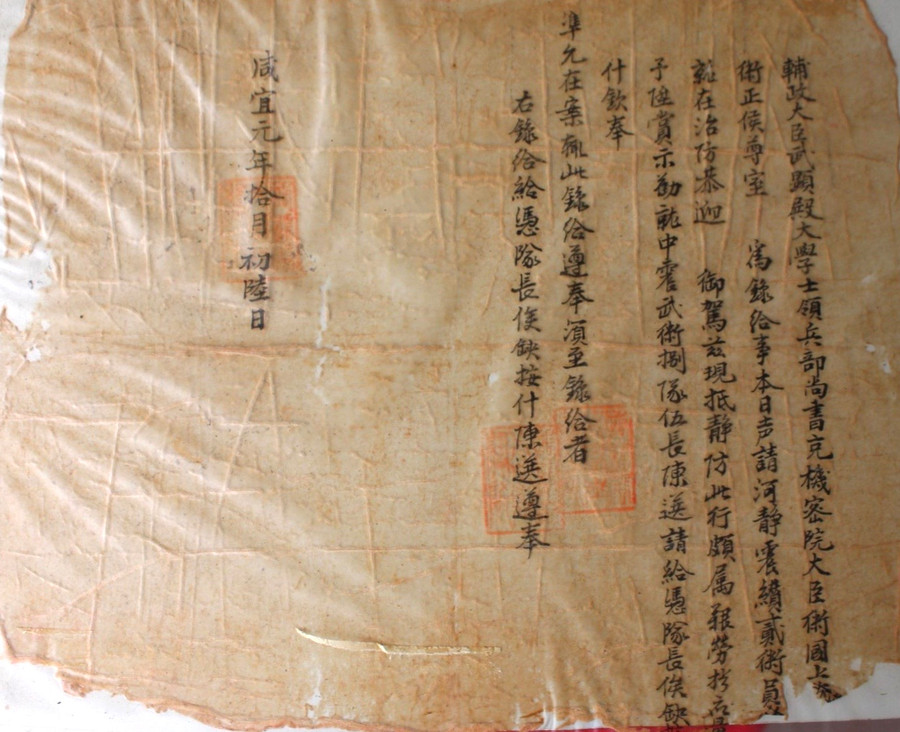 輔政大臣武顯殿大學士領兵部尚書充機密院大臣衛國上
衛正侯尊室 爲錄給事本日声請河靜震續貳衛員
在治防恭迎 御駕茲現抵靜防此行頗属艱勞
予陞賞示勸就中霍武衛捌隊伍長陳選請給憑隊長候缺
什欽奉
準允在案輒此錄給遵奉須至錄給者
右錄給給憑隊長候缺按什陳選遵奉
咸宜元年拾月初陸日